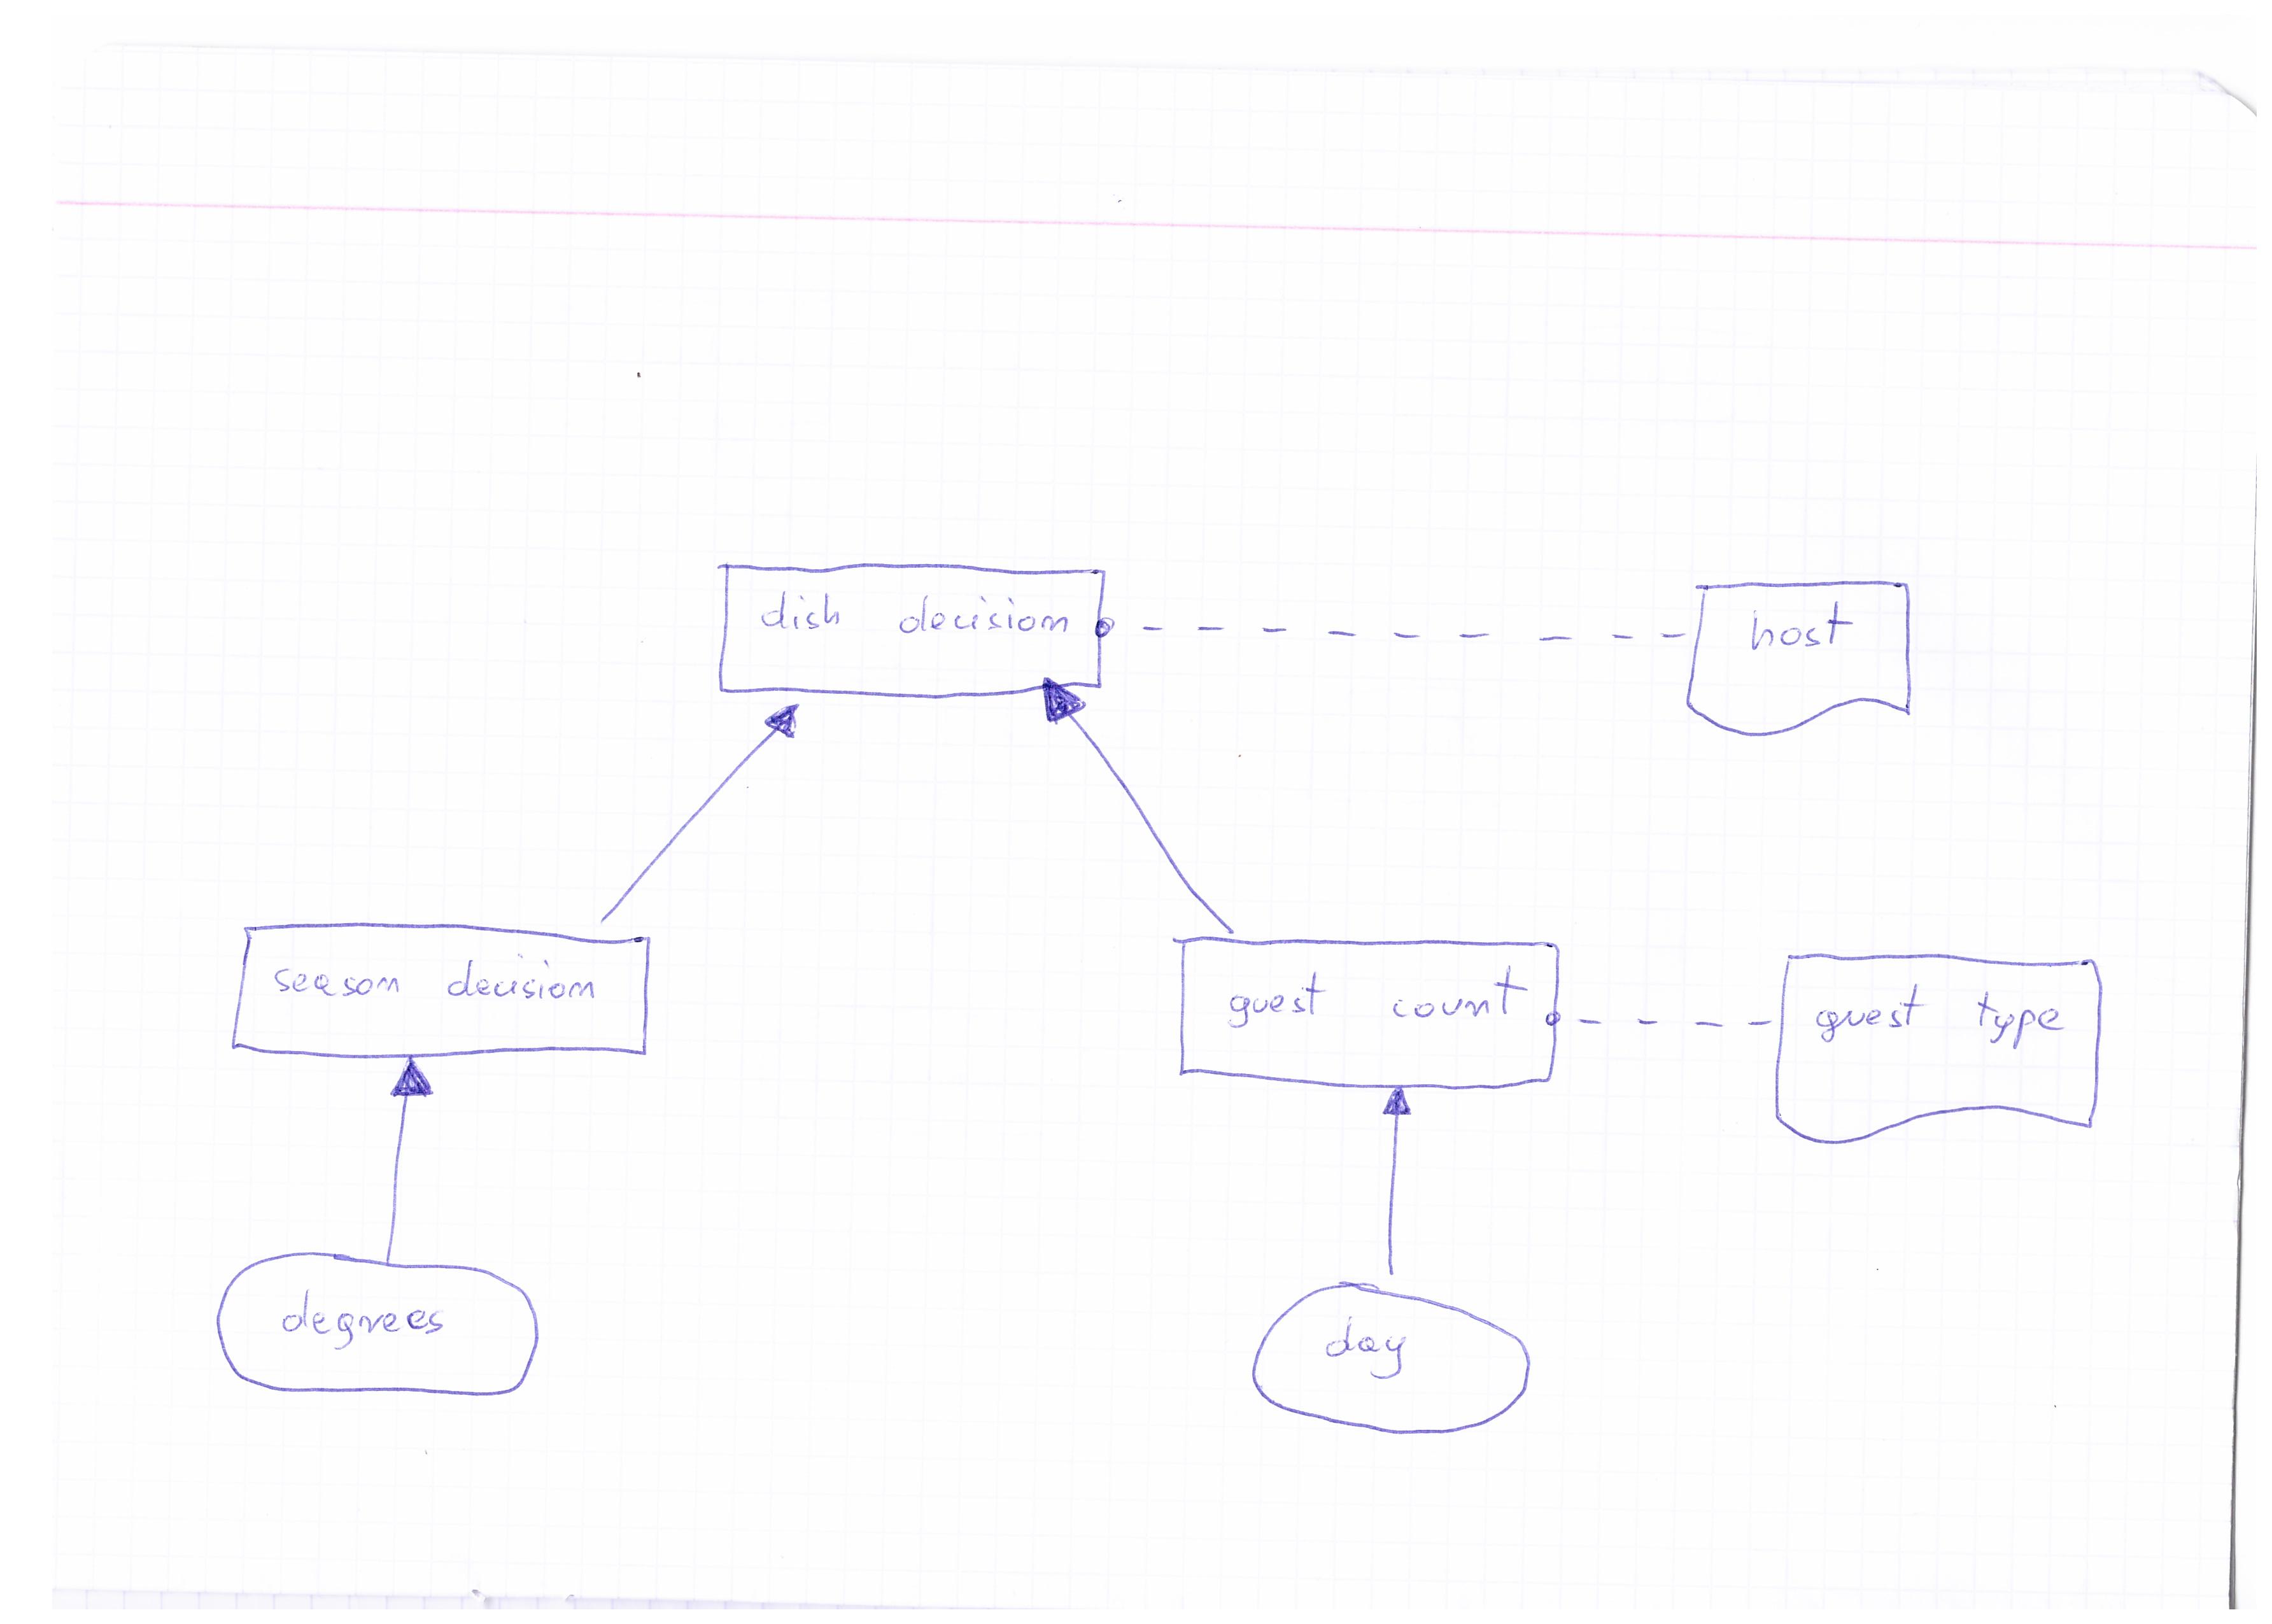 dish decision
host
season decision
guest count
guest type
degrees
day